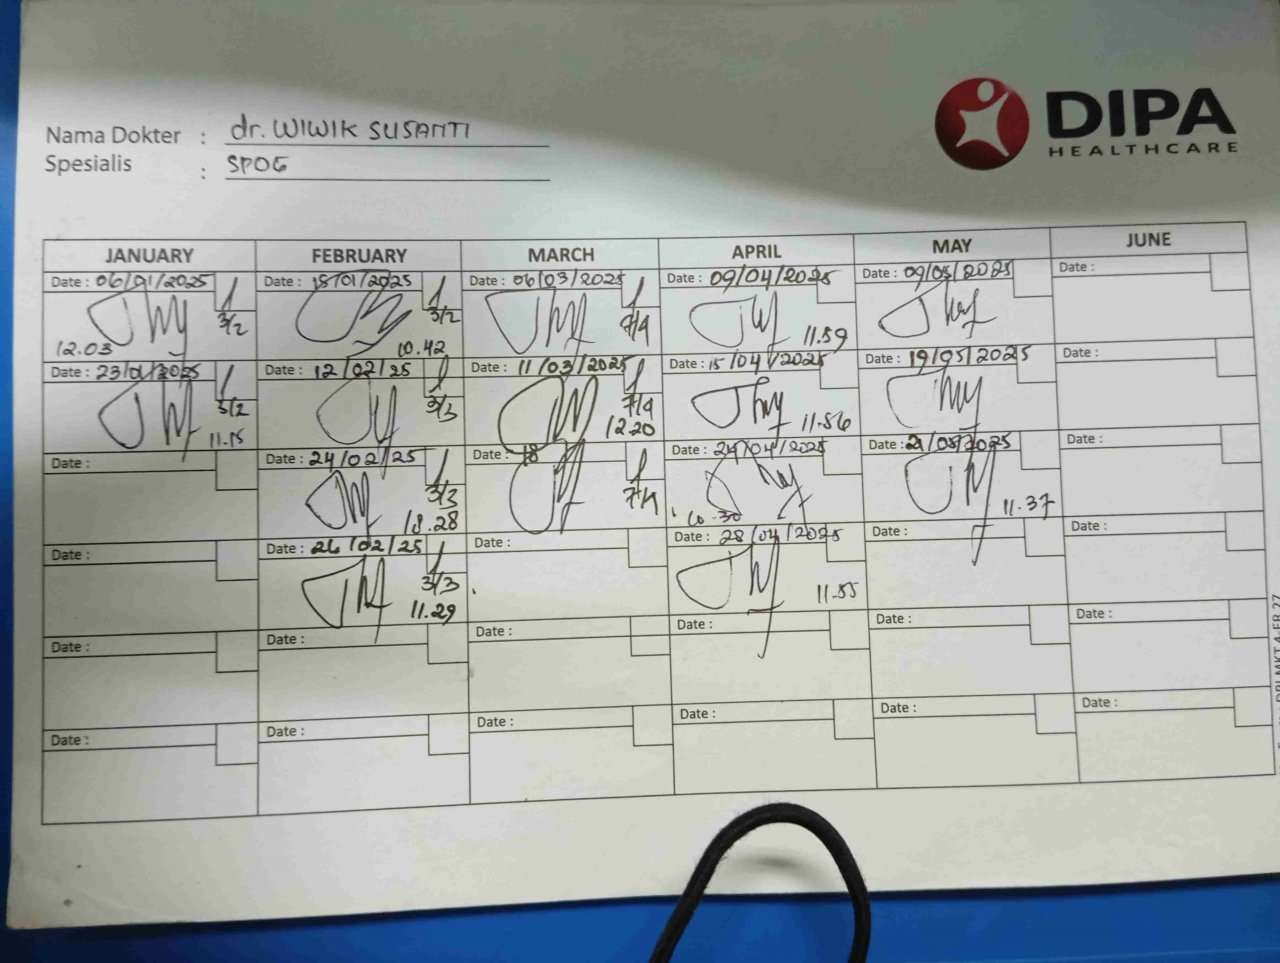 DIPA
HEALTHCARE
Nama Dokter : dr. WIWIK SUSANTI
Spesialis : SPOG
JANUARY FEBRUARY MARCH APRIL MAY JUNE
Date : 06/01/2025 Date : 15/01/2025 Date : 06/03/2025 Date : 09/04/2025 Date : 09/05/2025 Date :
3/2 3/2 7/4
12.03 10.42 11.59
Date : 23/01/2025 Date : 12/02/25 Date : 11/03/2025 Date : 15/04/2025 Date : 19/05/2025 Date :
3/2 3/3 7/4
11.15 12.20 11.56
Date : Date : 24/02/25 Date : 18 Date : 24/04/2025 Date : 21/05/2025 Date :
3/3 7/4
18.28 10.30 11.37
Date : Date : 26/02/25 Date : Date : 28/04/2025 Date : Date :
3/3
11.29 11.55
Date : Date : Date : Date : Date : Date :
Date : Date : Date : Date : Date : Date :